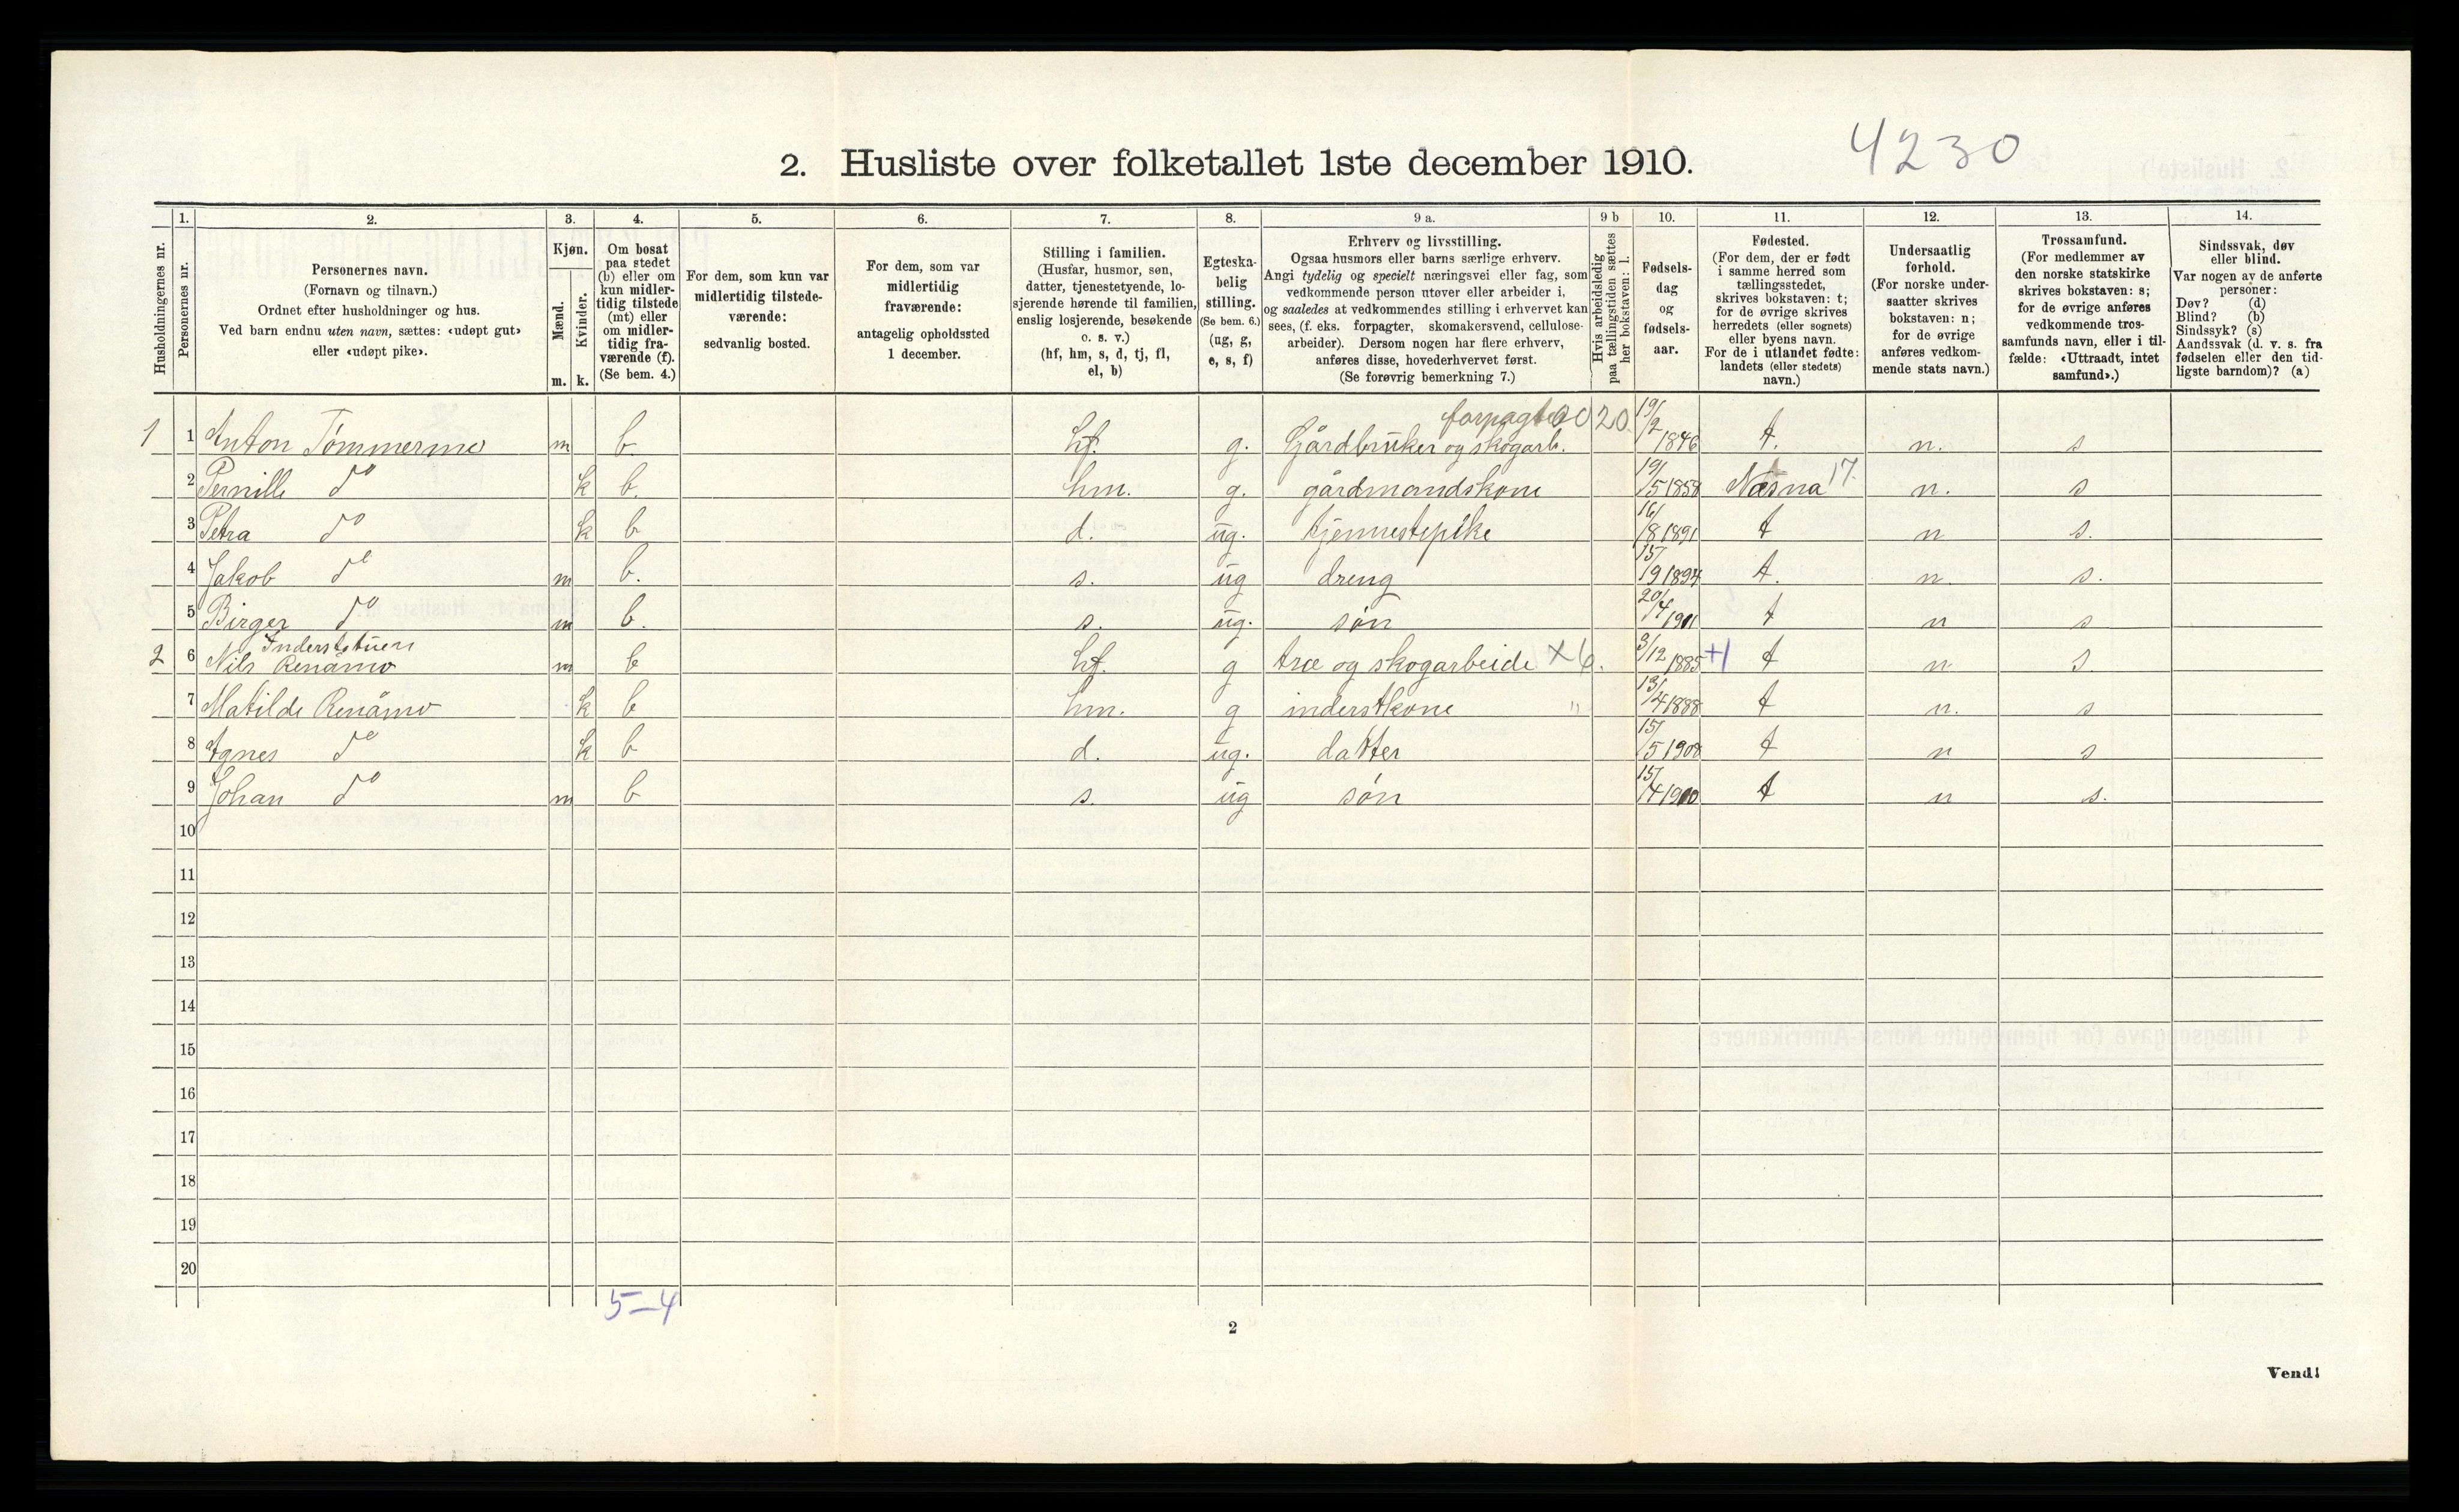 4230
2. Husliste over folketallet 1ste december 1910.
Husholdningernes nr.
1.
Personernes nr.
2.
Personernes navn.
(Fornavn og tilnavn.)
Ordnet efter husholdninger og hus.
Ved barn endnu uten navn, sættes: «udøpt gut»
eller «udøpt pike».
3.
Kjøn.
Mænd.
Kvinder.
m. k.
4.
Om bosat
paa stedet
(b) eller om
kun midler-
tidig tilstede
(mt) eller
om midler-
tidig fra-
værende (f).
(Se bem. 4.)
5.
For dem, som kun var
midlertidig tilstede-
værende:
sedvanlig bosted.
6.
For dem, som var
midlertidig
fraværende:
antagelig opholdssted
1 december.
7.
Stilling i familien.
(Husfar, husmor, søn,
datter, tjenestetyende, lo-
sjerende hørende til familien,
enslig losjerende, besøkende
o. s. v.)
(hf, hm, s, d, tj, fl,
el, b)
8.
Egteska-
belig
stilling.
(Se bem. 6.)
(ug, g,
e, s, f)
9 a.
Erhverv og livsstilling.
Ogsaa husmors eller barns særlige erhverv.
Angi tydelig og specielt næringsvei eller fag, som
vedkommende person utøver eller arbeider i,
og saaledes at vedkommendes stilling i erhvervet kan
sees, (f. eks. forpagter, skomakersvend, cellulose-
arbeider). Dersom nogen har flere erhverv,
anføres disse, hovederhvervet først.
(Se forøvrig bemerkning 7.)
9 b
Hvis arbeidsledig
paa tællingstiden sættes
her bokstaven: l.
10.
Fødsels-
dag
og
fødsels-
aar.
11.
Fødested.
(For dem, der er født
i samme herred som
tællingsstedet,
skrives bokstaven: t;
for de øvrige skrives
herredets (eller sognets)
eller byens navn.
For de i utlandet fødte:
landets (eller stedets)
navn.)
12.
Undersaatlig
forhold.
(For norske under-
saatter skrives
bokstaven: n;
for de øvrige
anføres vedkom-
mende stats navn.)
13.
Trossamfund.
(For medlemmer av
den norske statskirke
skrives bokstaven: s;
for de øvrige anføres
vedkommende tros-
samfunds navn, eller i til-
fælde: «Uttraadt, intet
samfund».)
14.
Sindssvak, døv
eller blind.
Var nogen av de anførte
personer:
Døv? (d)
Blind? (b)
Sindssyk? (s)
Aandssvak (d. v. s. fra
fødselen eller den tid-
ligste barndom)? (a)
1 1 Anton Tømmermo m b. hf. g. forpagter 20 Gårdbruker og skogarb. 19/2 1846 t. n. s
2 Pernille do k b. hm. g. gårdmandskone 19/5 1858 Næsna 17. n. s
3 Petra do k b d. ug. tjennestepike 16/8 1891 t n s.
4 Jakob do m b. s. ug dreng 15/9 1894 t. n. s.
5 Birger do m b. s. ug. søn 20/4 1901 t n s
Inderststuen
2 6 Nils Renåmo m b hf. g træ og skogarbeide X 6. 3/12 1885 +1 t n s
7 Matilde Renåmo k b hm. g inderstkone " 13/4 1888 t n. s
8 Agnes do k b d. ug. datter 15/5 1908 t n s
9 Johan do m b s. ug søn 15/4 1910 t n s.
10
11
12
13
14
15
16
17
18
19
20
5-4
2
Vend!